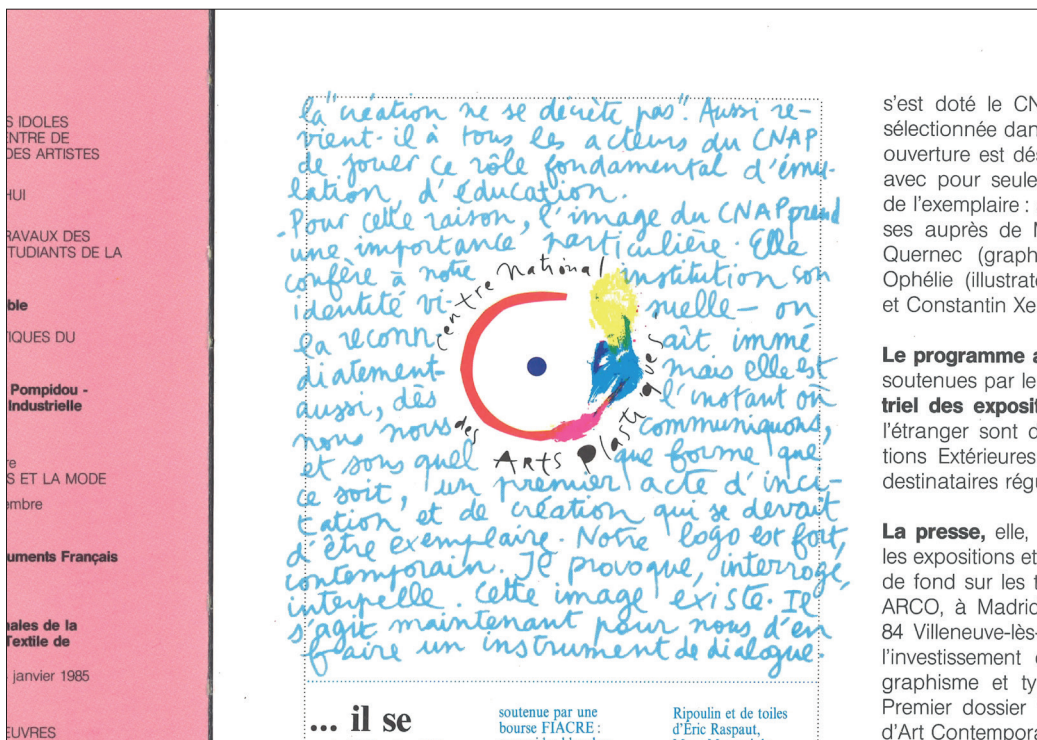 S IDOLES
ENTRE DE
DES ARTISTES
HUI
RAVAUX DES
TUDIANTS DE LA
ble
IQUES DU
Pompidou -
Industrielle
re
S ET LA MODE
embre
uments Français
nales de la
Textile de
janvier 1985
EUVRES
la "création ne se décrète pas". Aussi re-
vient-il à tous les acteurs du CNAP
de jouer ce rôle fondamental d'ému-
lation, d'éducation.
- Pour cette raison, l'image du CNAP prend
une importance particulière. Elle
confère à notre institution son
identité visuelle - on
la reconnaît immé
diatement - mais elle est
aussi, dès l'instant où
nous nous communiquons,
et sous quelque forme que
ce soit, un premier acte d'inci-
tation et de création qui se devait
d'être exemplaire. Notre logo est fort,
contemporain. Il provoque, interroge,
interpelle. Cette image existe. Il
s'agit maintenant pour nous d'en
faire un instrument de dialogue.
centre national
des Arts Plastiques
... il se
soutenue par une
bourse FIACRE :
Ripoulin et de toiles
d'Éric Raspaut,
s'est doté le CN
sélectionnée dan
ouverture est dés
avec pour seule
de l'exemplaire :
ses auprès de M
Quernec (graph
Ophélie (illustrate
et Constantin Xe
Le programme a
soutenues par le
triel des exposit
l'étranger sont d
tions Extérieures
destinataires régu
La presse, elle,
les expositions et
de fond sur les t
ARCO, à Madrid
84 Villeneuve-lès-
l'investissement
graphisme et ty
Premier dossier
d'Art Contempora